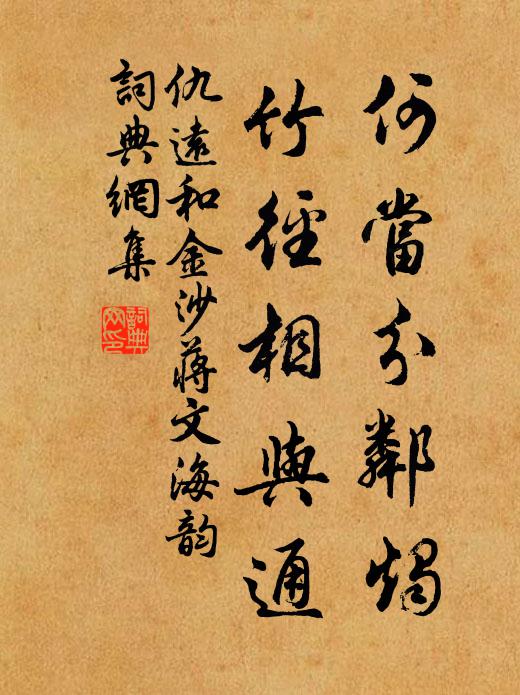 何當分鄰燭
竹徑相與通
仇遠和金沙蔣文海韵
詞典網集
詞典網印